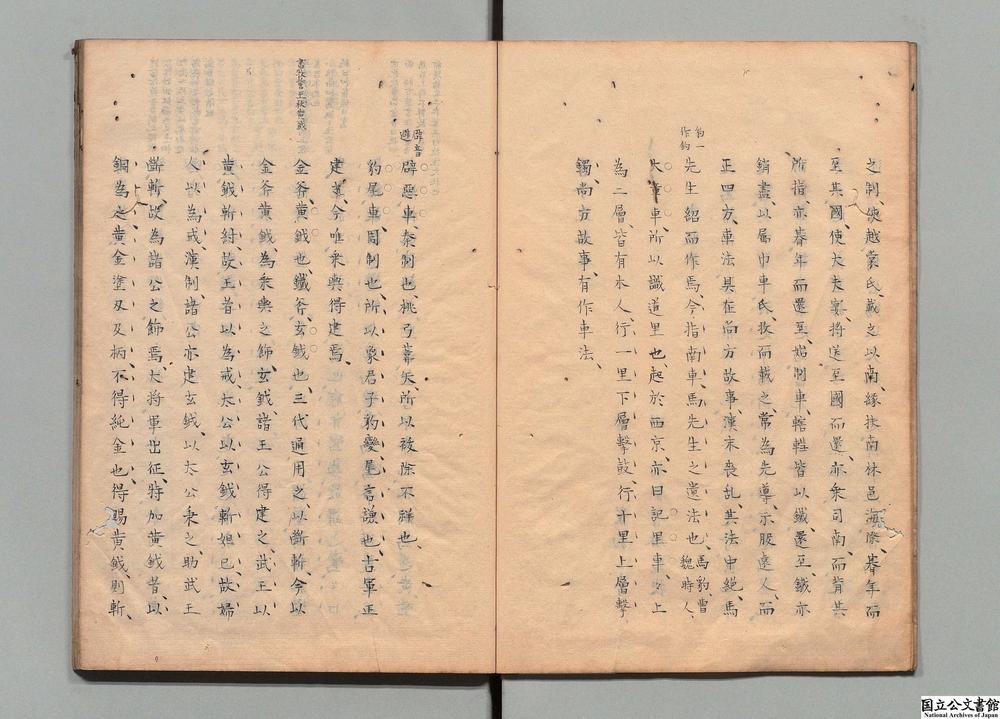 之制、使越裳氏、載之以南、緣扶南林邑海際、朞年而
至其國、使大夫宴將送至國而還、亦乘司南、而背其
所指、亦朞年而還至、始制車轄轊皆以鐵、還至、鐵亦
銷盡、以屬巾車氏、收而載之、常為先導、示服遠人、而
正四方、車法具在尚方故事、漢末喪乱、其法中絕、馬
鈞一
作鈞
先生紹而作焉、今指南車、馬先生之遺法也、馬豹、曹
魏時人、
大章車、所以識道里也、起於西京、亦曰記里車、車上
為二層、皆有木人、行一里下層擊鼓、行十里上層擊
鐲、尚方故事、有作車法、
辟音
避
辟惡車、秦制也、桃弓葦矢、所以祓除不祥也、
豹尾車、周制也、所以象君子豹變、尾言謙也、古軍正
建之、今唯乘輿得建焉、
書牧誓王杖黃鉞
金斧黃鉞也、鐵斧玄鉞也、三代通用之、以斷斬、今以
金斧黃鉞、為乘輿之飾、玄鉞、諸王公得建之、武王以
黃鉞斬紂、故王者以為戒、太公以玄鉞斬妲己、故婦
人以為戒、漢制諸公亦建玄鉞、以太公秉之、助武王
斷斬、故為諸公之飾焉、大將軍出征、特加黃鉞者、以
銅為之、黃金塗刃及柄、不得純金也、得賜黃鉞、則斬、
国立公文書館
National Archives of Japan